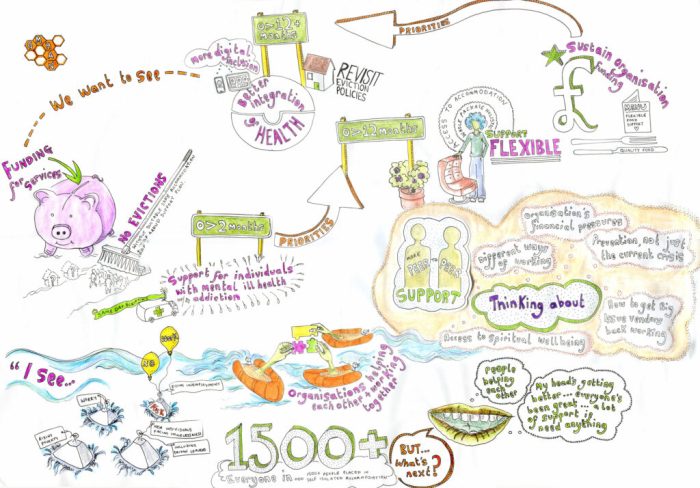 We want to see
Funding
for services
NO EVICTIONS
more digital
inclusion
0 > 12+
months
Better
integration
of HEALTH
REVISIT
EVICTION
POLICIES
PRIORITIES
Sustain organisation
funding
£
MENU
FLEXIBLE
FOOD
SUPPORT
QUALITY FOOD
ACCESS TO ACCOMMODATION
SUPPORT
FLEXIBLE
0 > 12 months
PRIORITIES
0 > 2 months
Support for individuals
with mental ill health
addiction
MORE
PEER PEER
SUPPORT
Organisation's
financial pressures
Different ways
of working
Prevention, not just
the current crisis
Thinking about
How to get Big
Issue vendors
back working
Access to spiritual well being
"I see...
RISING UNEMPLOYMENT
WORRY
RISING
POVERTY
NEW INDIVIDUALS
FACING HOMELESSNESS
INCLUDING
PRISON LEAVERS
Organisations helping
each other + working
together
1500+
"Everyone in
1500+ PEOPLE PLACED IN
SELF ISOLATED ACCOMMODATION
BUT...
what's
next?
people
helping
each other
My head's getting
better... everyone's
been great... a lot
of support if I
need anything